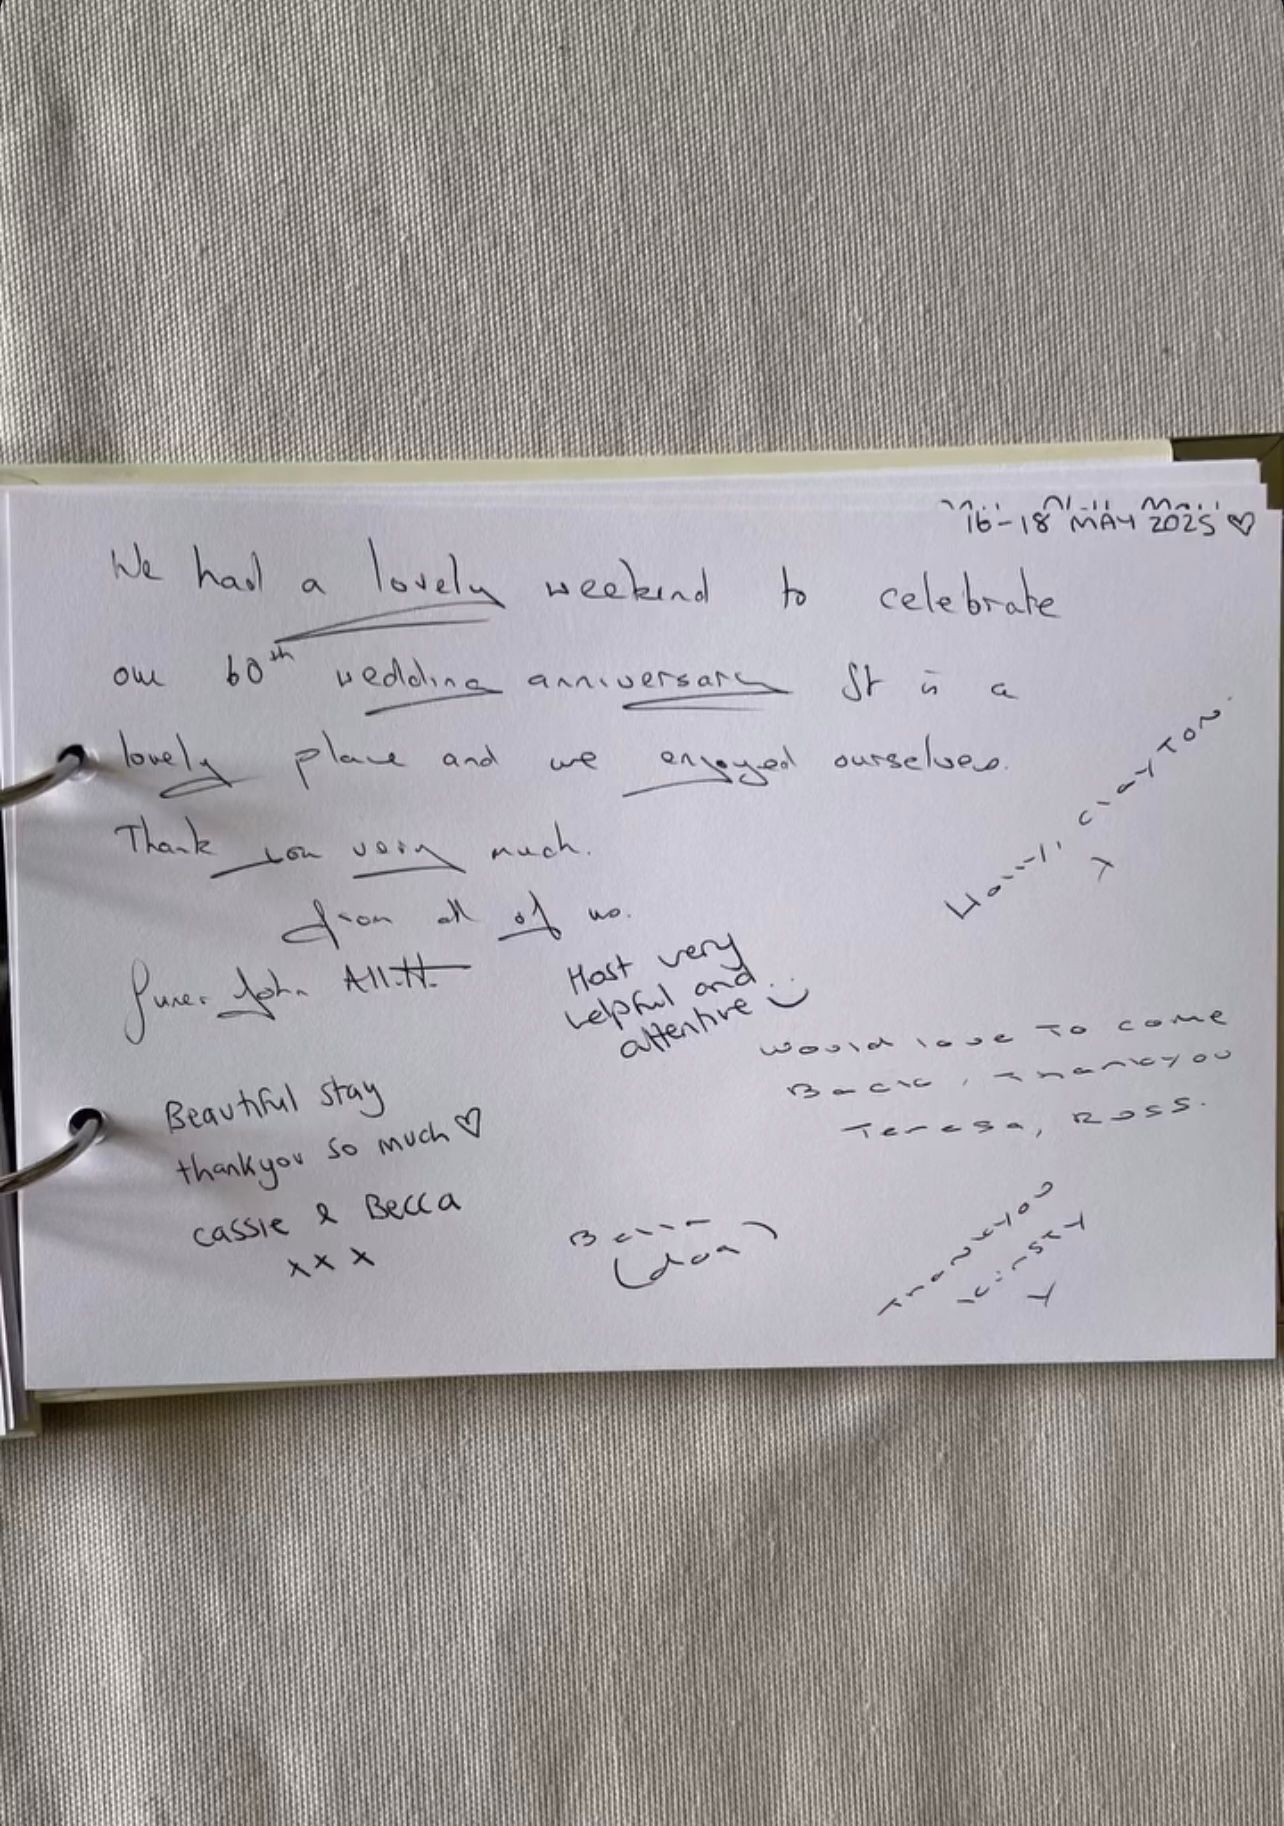 16-18 MAY 2025 ♡
We had a lovely weekend to celebrate
our 60th wedding anniversary It is a
lovely place and we enjoyed ourselves.
Thank you very much.
from all of us.
John
Host very
helpful and
attentive
Clayton.
x
Would love to come
Back, Thankyou
Teresa, Ross.
Beautiful stay
thankyou so much ♡
Cassie & Becca
x x x
(dog)
Thankyou
Kirsty
x